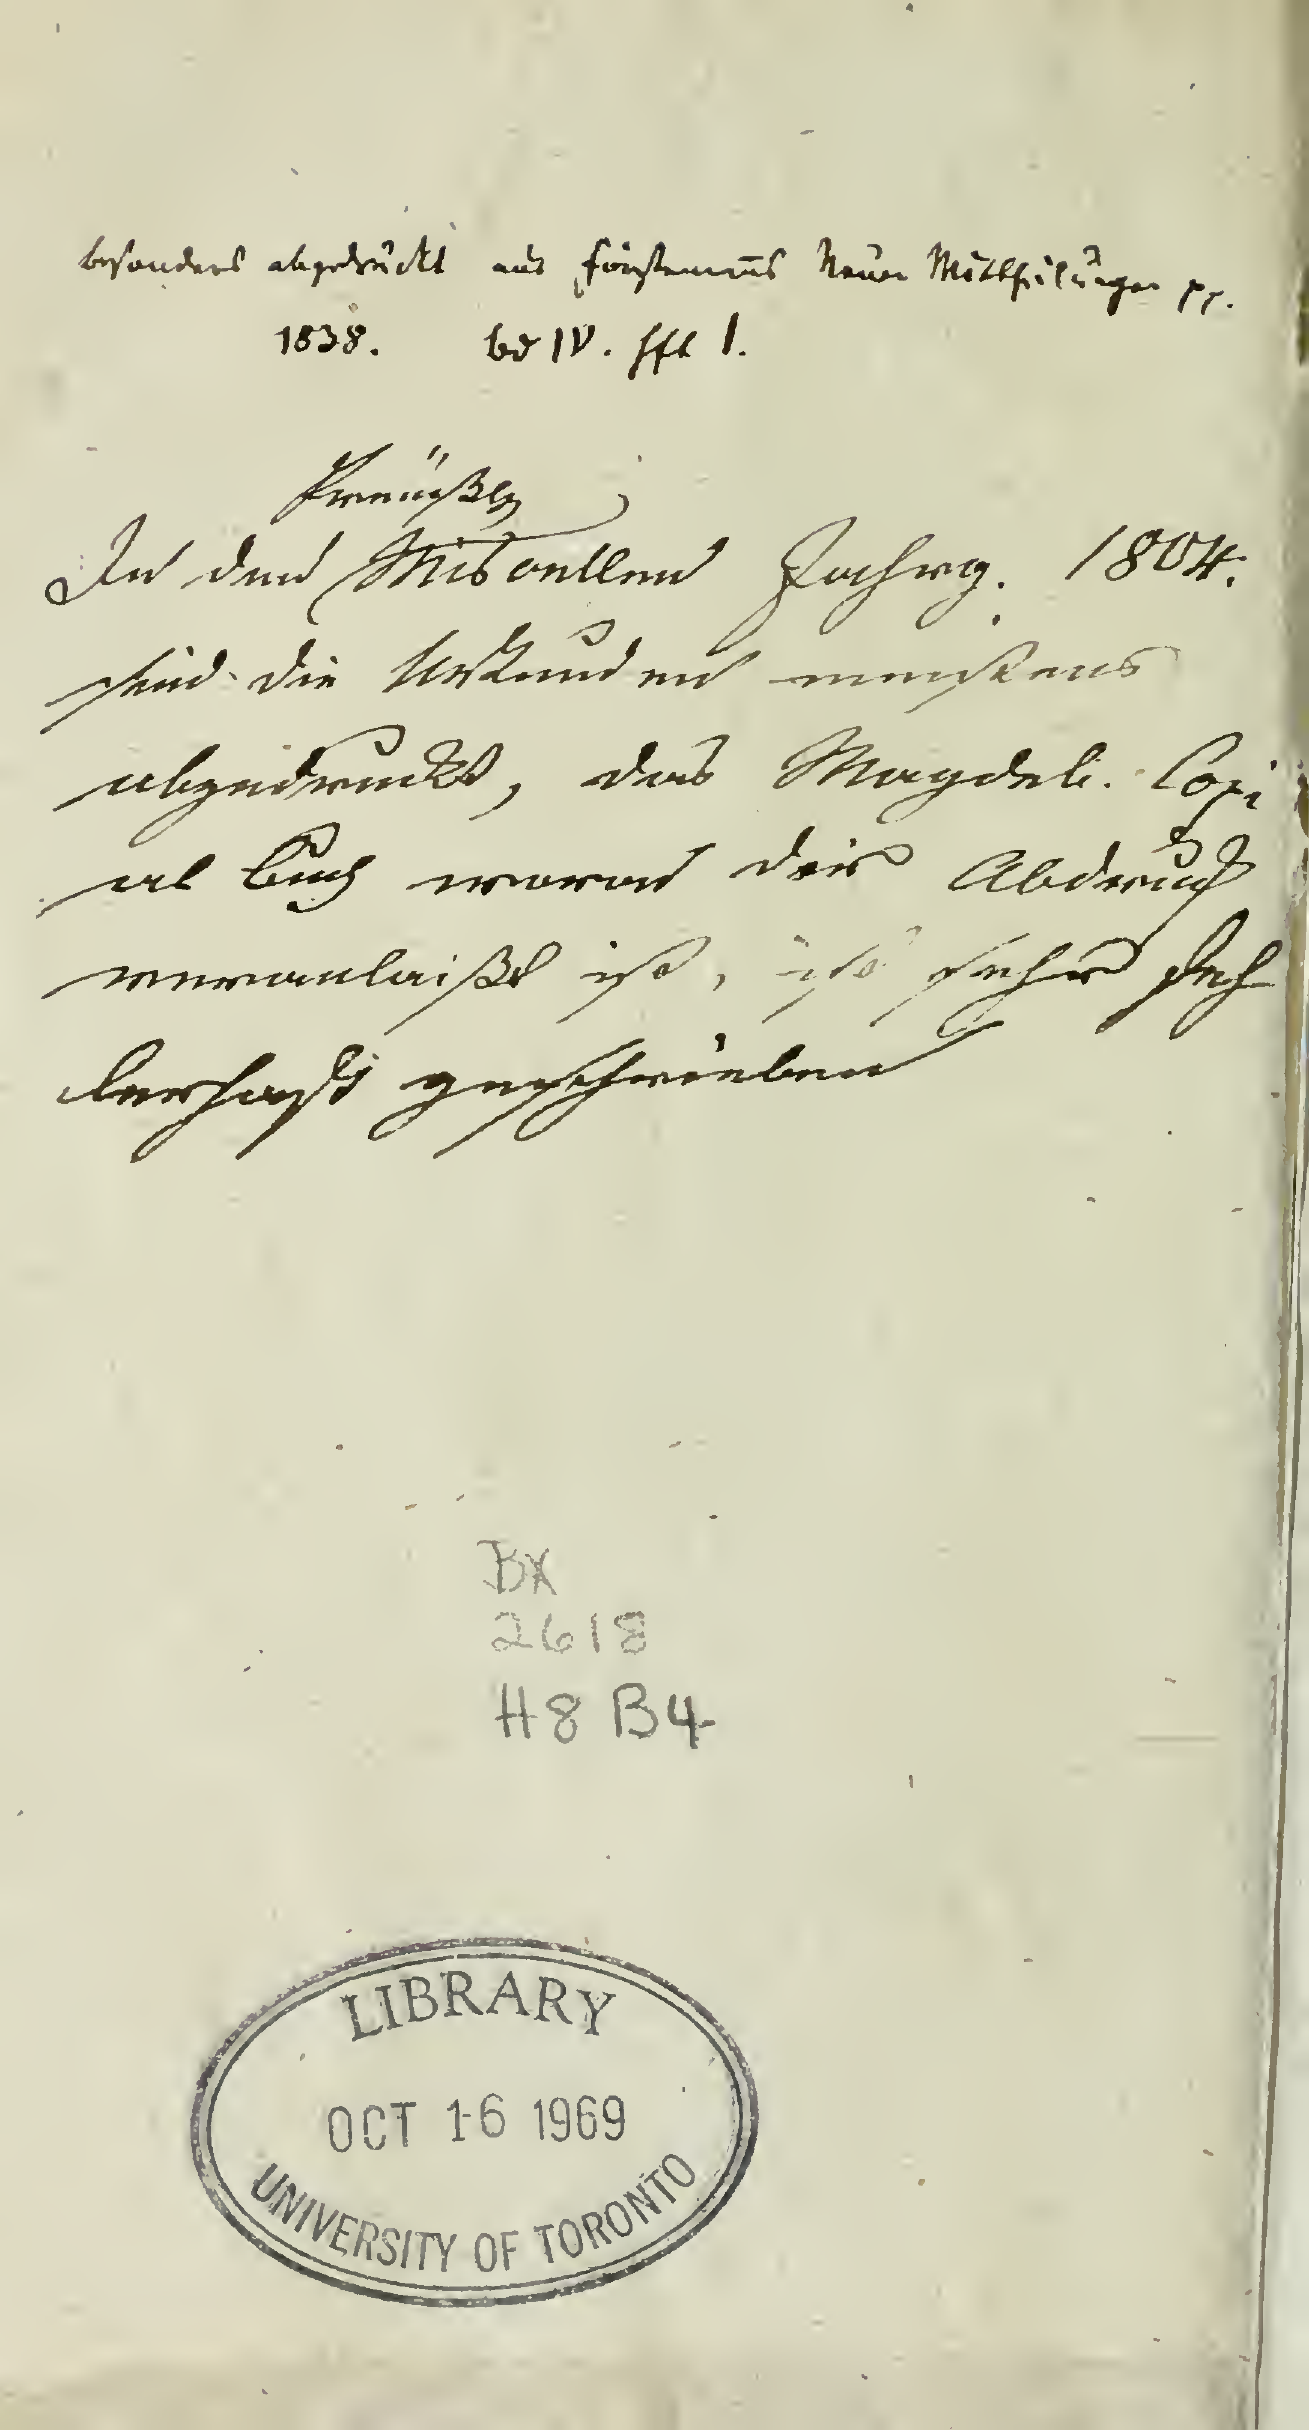 besonders abgedruckt aus Förstemanns Neuen Mittheilungen pp.
1838. bd IV. Hft I.
Preußischen
In den Miscellen Jahrg. 1804.
sind die Urkunden meistens
abgedruckt, das Magdeb. Copi
al buch woran der Abdruck
veranlaißt ist, ist sehr feh-
lerhaft geschrieben
BX
2618
H8 B4
LIBRARY
OCT 16 1969
UNIVERSITY OF TORONTO